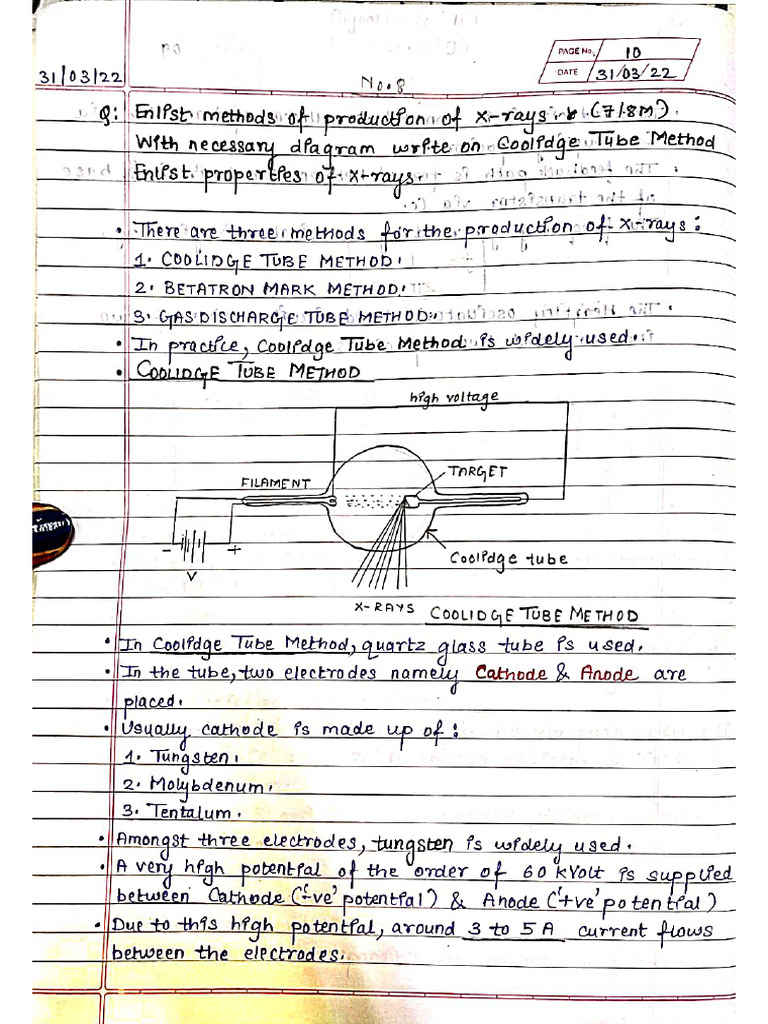 PAGE No. 10
DATE 31/03/22
31/03/22
No.8
Q: Enlist methods of production of X-rays. (7/8M)
With necessary diagram write on Coolidge Tube Method
Enlist properties of X-rays.
• There are three methods for the production of X-rays:
1. COOLIDGE TUBE METHOD.
2. BETATRON MARK METHOD.
3. GAS DISCHARGE TUBE METHOD.
• In practice, Coolidge Tube Method is widely used.
• COOLIDGE TUBE METHOD
high voltage
TARGET
FILAMENT
- +
V
Coolidge tube
X-RAYS COOLIDGE TUBE METHOD
• In Coolidge Tube Method, quartz glass tube is used.
• In the tube, two electrodes namely Cathode & Anode are
placed.
• Usually cathode is made up of:
1. Tungsten.
2. Molybdenum.
3. Tentalum.
• Amongst three electrodes, tungsten is widely used.
• A very high potential of the order of 60 kVolt is supplied
between Cathode ('-ve' potential) & Anode ('+ve' potential)
• Due to this high potential, around 3 to 5 A current flows
between the electrodes.